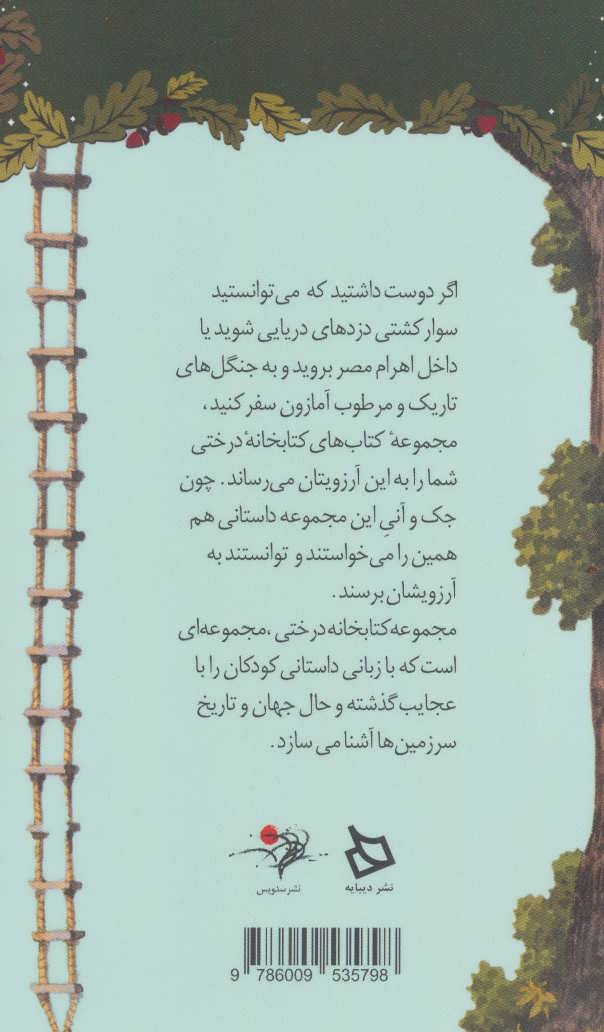 اگر دوست داشتید که می‌توانستید
سوار کشتی دزدهای دریایی شوید یا
داخل اهرام مصر بروید و به جنگل‌های
تاریک و مرطوب آمازون سفر کنید،
مجموعهٔ کتاب‌های کتابخانهٔ درختی
شما را به این آرزویتان می‌رساند. چون
جک و آنیِ این مجموعه داستانی هم
همین را می‌خواستند و توانستند به
آرزویشان برسند.
مجموعه کتابخانه درختی، مجموعه‌ای
است که با زبانی داستانی کودکان را با
عجایب گذشته و حال جهان و تاریخ
سرزمین‌ها آشنا می سازد.
نشر دیبایه
نشر سدویس
9 786009 535798